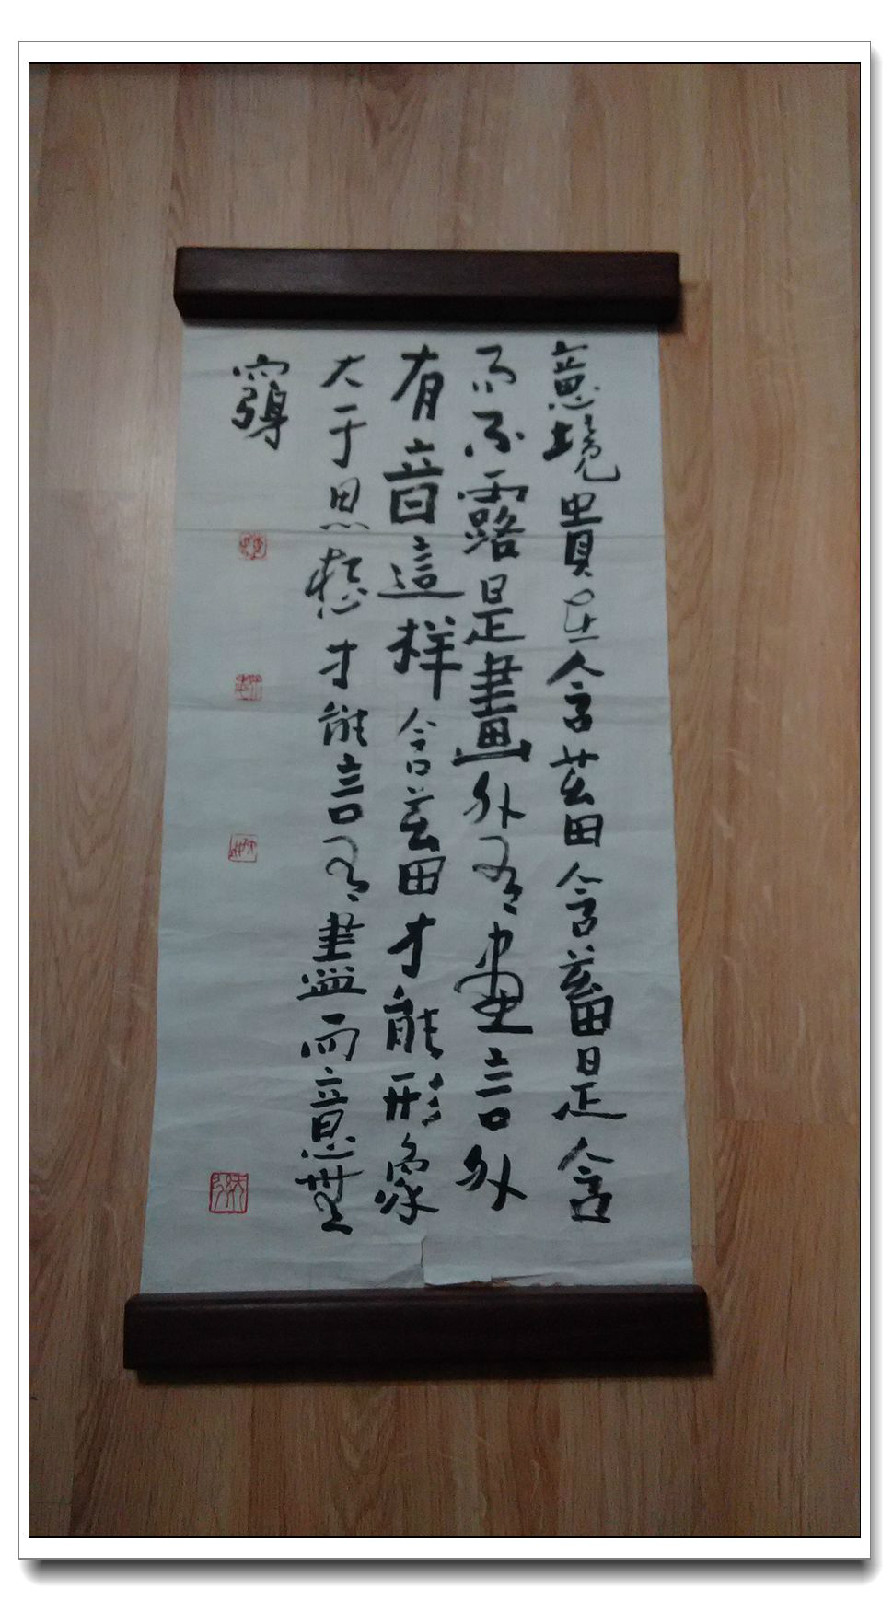 意境貴在含蓄含蓄是含
而不露是畫外有畫言外
有音這样含蓄才能形象
大于思想才能言有盡而意無
窮